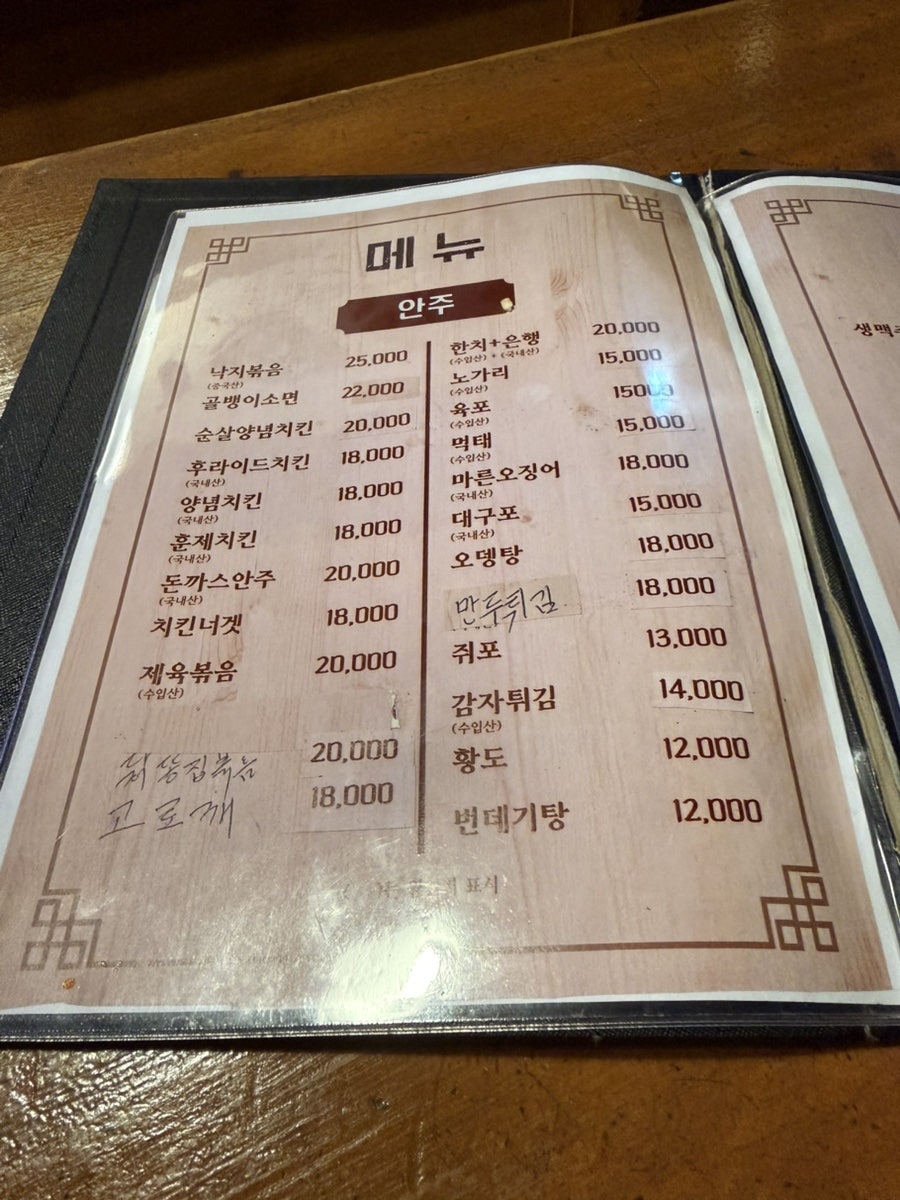 메뉴
안주
낙지볶음 25,000
(중국산)
골뱅이소면 22,000
순살양념치킨 20,000
후라이드치킨 18,000
(국내산)
양념치킨 18,000
(국내산)
훈제치킨 18,000
(국내산)
돈까스안주 20,000
(국내산)
치킨너겟 18,000
제육볶음 20,000
(수입산)
20,000
고로깨 18,000
한치+은행 20,000
(수입산) + (국내산)
노가리 15,000
(수입산)
육포 15000
(수입산)
먹태 15,000
(수입산)
마른오징어 18,000
(국내산)
대구포 15,000
(국내산)
오뎅탕 18,000
만두튀김 18,000
쥐포 13,000
감자튀김 14,000
(수입산)
황도 12,000
번데기탕 12,000
표시
생맥